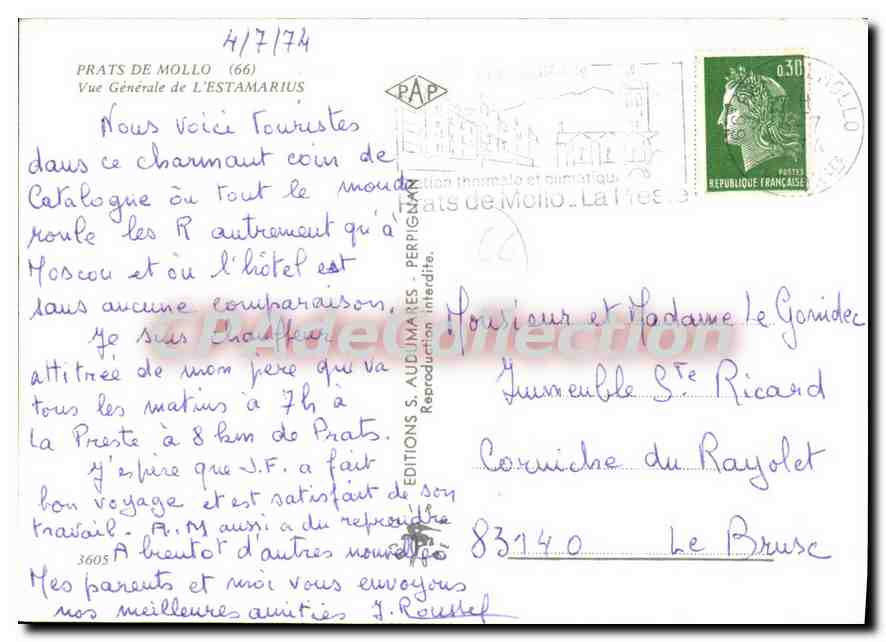 4/7/74
PRATS DE MOLLO (66)
Vue Générale de L'ESTAMARIUS
Nous voici Touristes
dans ce charmant coin de
Catalogne où tout le monde
roule les R autrement qu'à
Moscou et où l'hôtel est
sans aucune comparaison.
Je suis Chauffeur
attitrée de mon père qui va
tous les matins à 7h à
La Preste à 8 km de Prats.
J'espère que J.F. a fait
bon voyage et est satisfait de son
travail. A.M aussi a du reprendre
A bientôt d'autres nouvelles
Mes parents et moi vous envoyons
nos meilleures amitiés J. Roussel
3605
PAP
EDITIONS S. AUDUMARES - PERPIGNAN
Reproduction interdite.
thermale et climatique
Prats de Mollo - La Preste
0,30
POSTES
REPUBLIQUE FRANÇAISE
MOLLO
66
Monsieur et Madame Le Gonidec
Immeuble Ste Ricard
Corniche du Rayolet
83140 Le Brusc
CPAdeCollection